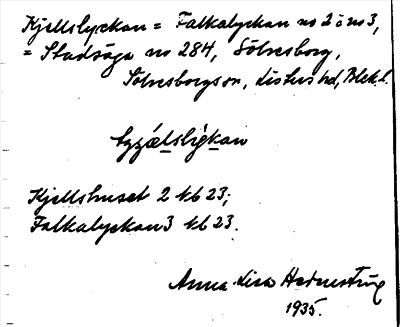 Kjellslyckan = Falkalyckan no 2 o no 3,
= Stadsäga no 284, Sölvesborg,
Sölvesborgs sn, Listers hd, Blek. l.
Kjellshuset 2 kb 23;
Falkalyckan 3 kb 23.
Anna-Lisa
1935.